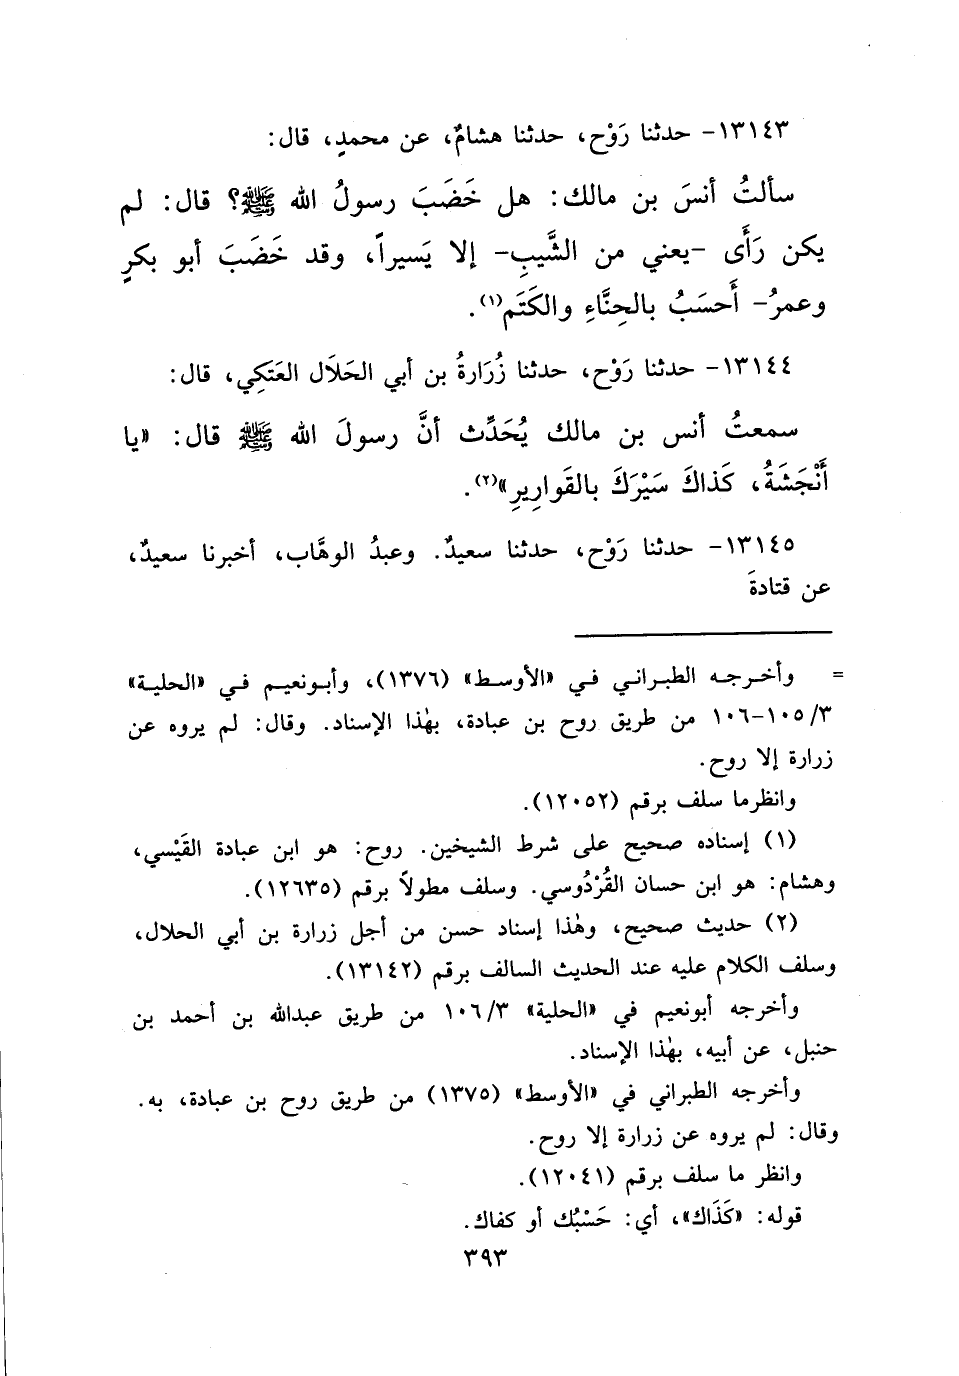 ١٣١٤٣- حدثنا رَوْح، حدثنا هشامٌ، عن محمدٍ، قال:
سألتُ أنسَ بن مالك: هل خَضَبَ رسولُ الله ﷺ؟ قال: لم
يكن رَأَى -يعني من الشَّيبِ- إلا يَسيراً، وقد خَضَبَ أبو بكرٍ
وعمرُ- أَحسَبُ بالحِنَّاءِ والكَتَم(١).
١٣١٤٤- حدثنا رَوْح، حدثنا زُرَارةُ بن أبي الحَلَال العَتَكِي، قال:
سمعتُ أنس بن مالك يُحَدِّث أنَّ رسولَ الله ﷺ قال: «يا
أَنْجَشَةُ، كَذاكَ سَيْرَكَ بالقَوارِيرِ»(٢).
١٣١٤٥- حدثنا رَوْح، حدثنا سعيدٌ. وعبدُ الوهَّاب، أخبرنا سعيدٌ،
عن قتادةَ
= وأخرجه الطبراني في «الأوسط» (١٣٧٦)، وأبونعيم في «الحلية»
٣/ ١٠٥-١٠٦ من طريق روح بن عبادة، بهٰذا الإسناد. وقال: لم يروه عن
زرارة إلا روح.
وانظرما سلف برقم (١٢٠٥٢).
(١) إسناده صحيح على شرط الشيخين. روح: هو ابن عبادة القَيْسي،
وهشام: هو ابن حسان القُرْدُوسي. وسلف مطولاً برقم (١٢٦٣٥).
(٢) حديث صحيح، وهٰذا إسناد حسن من أجل زرارة بن أبي الحلال،
وسلف الكلام عليه عند الحديث السالف برقم (١٣١٤٢).
وأخرجه أبونعيم في «الحلية» ٣/ ١٠٦ من طريق عبدالله بن أحمد بن
حنبل، عن أبيه، بهٰذا الإسناد.
وأخرجه الطبراني في «الأوسط» (١٣٧٥) من طريق روح بن عبادة، به.
وقال: لم يروه عن زرارة إلا روح.
وانظر ما سلف برقم (١٢٠٤١).
قوله: «كَذَاك»، أي: حَسْبُك أو كفاك.
٣٩٣